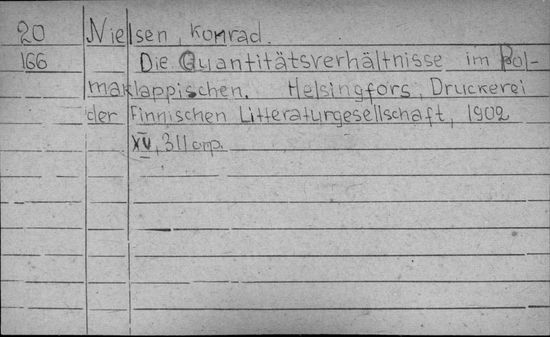 20 Nielsen, Konrad.
166 Die Quantitätsverhältnisse im Pol-
maklappischen. Helsingfors, Druckerei
der Finnischen Litteraturgesellschaft, 1902
XV, 311 cnp.